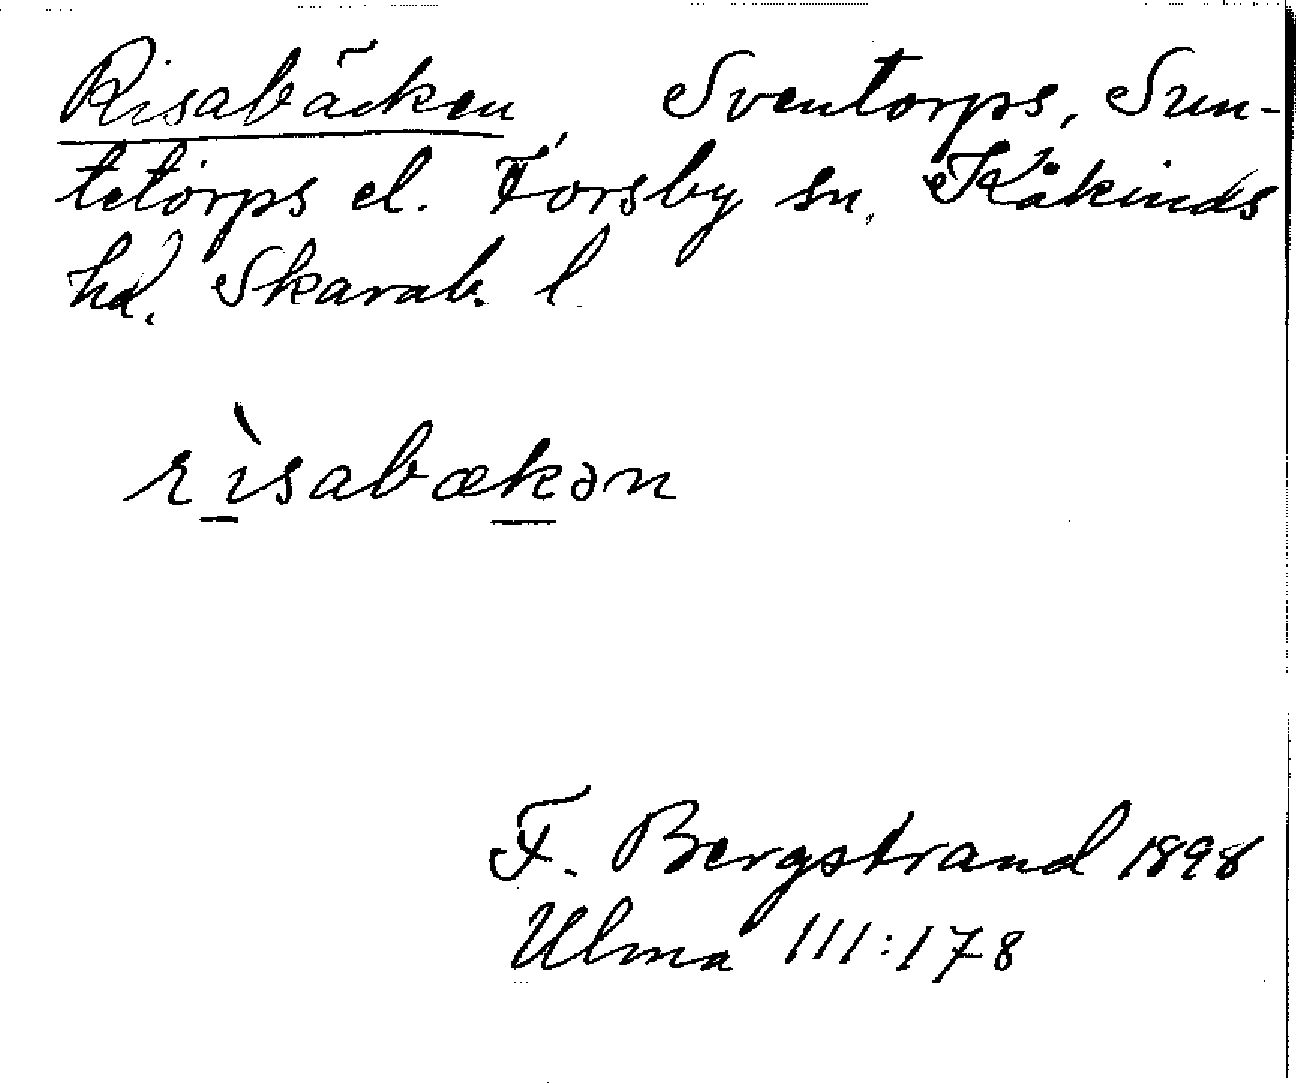 Risabäcken Sventorps, Sun-
tetorps el. Forsby sn, Kåkinds
hd. Skarab. l.
rìsabækən
F. Bergstrand 1898
Ulma 111:178